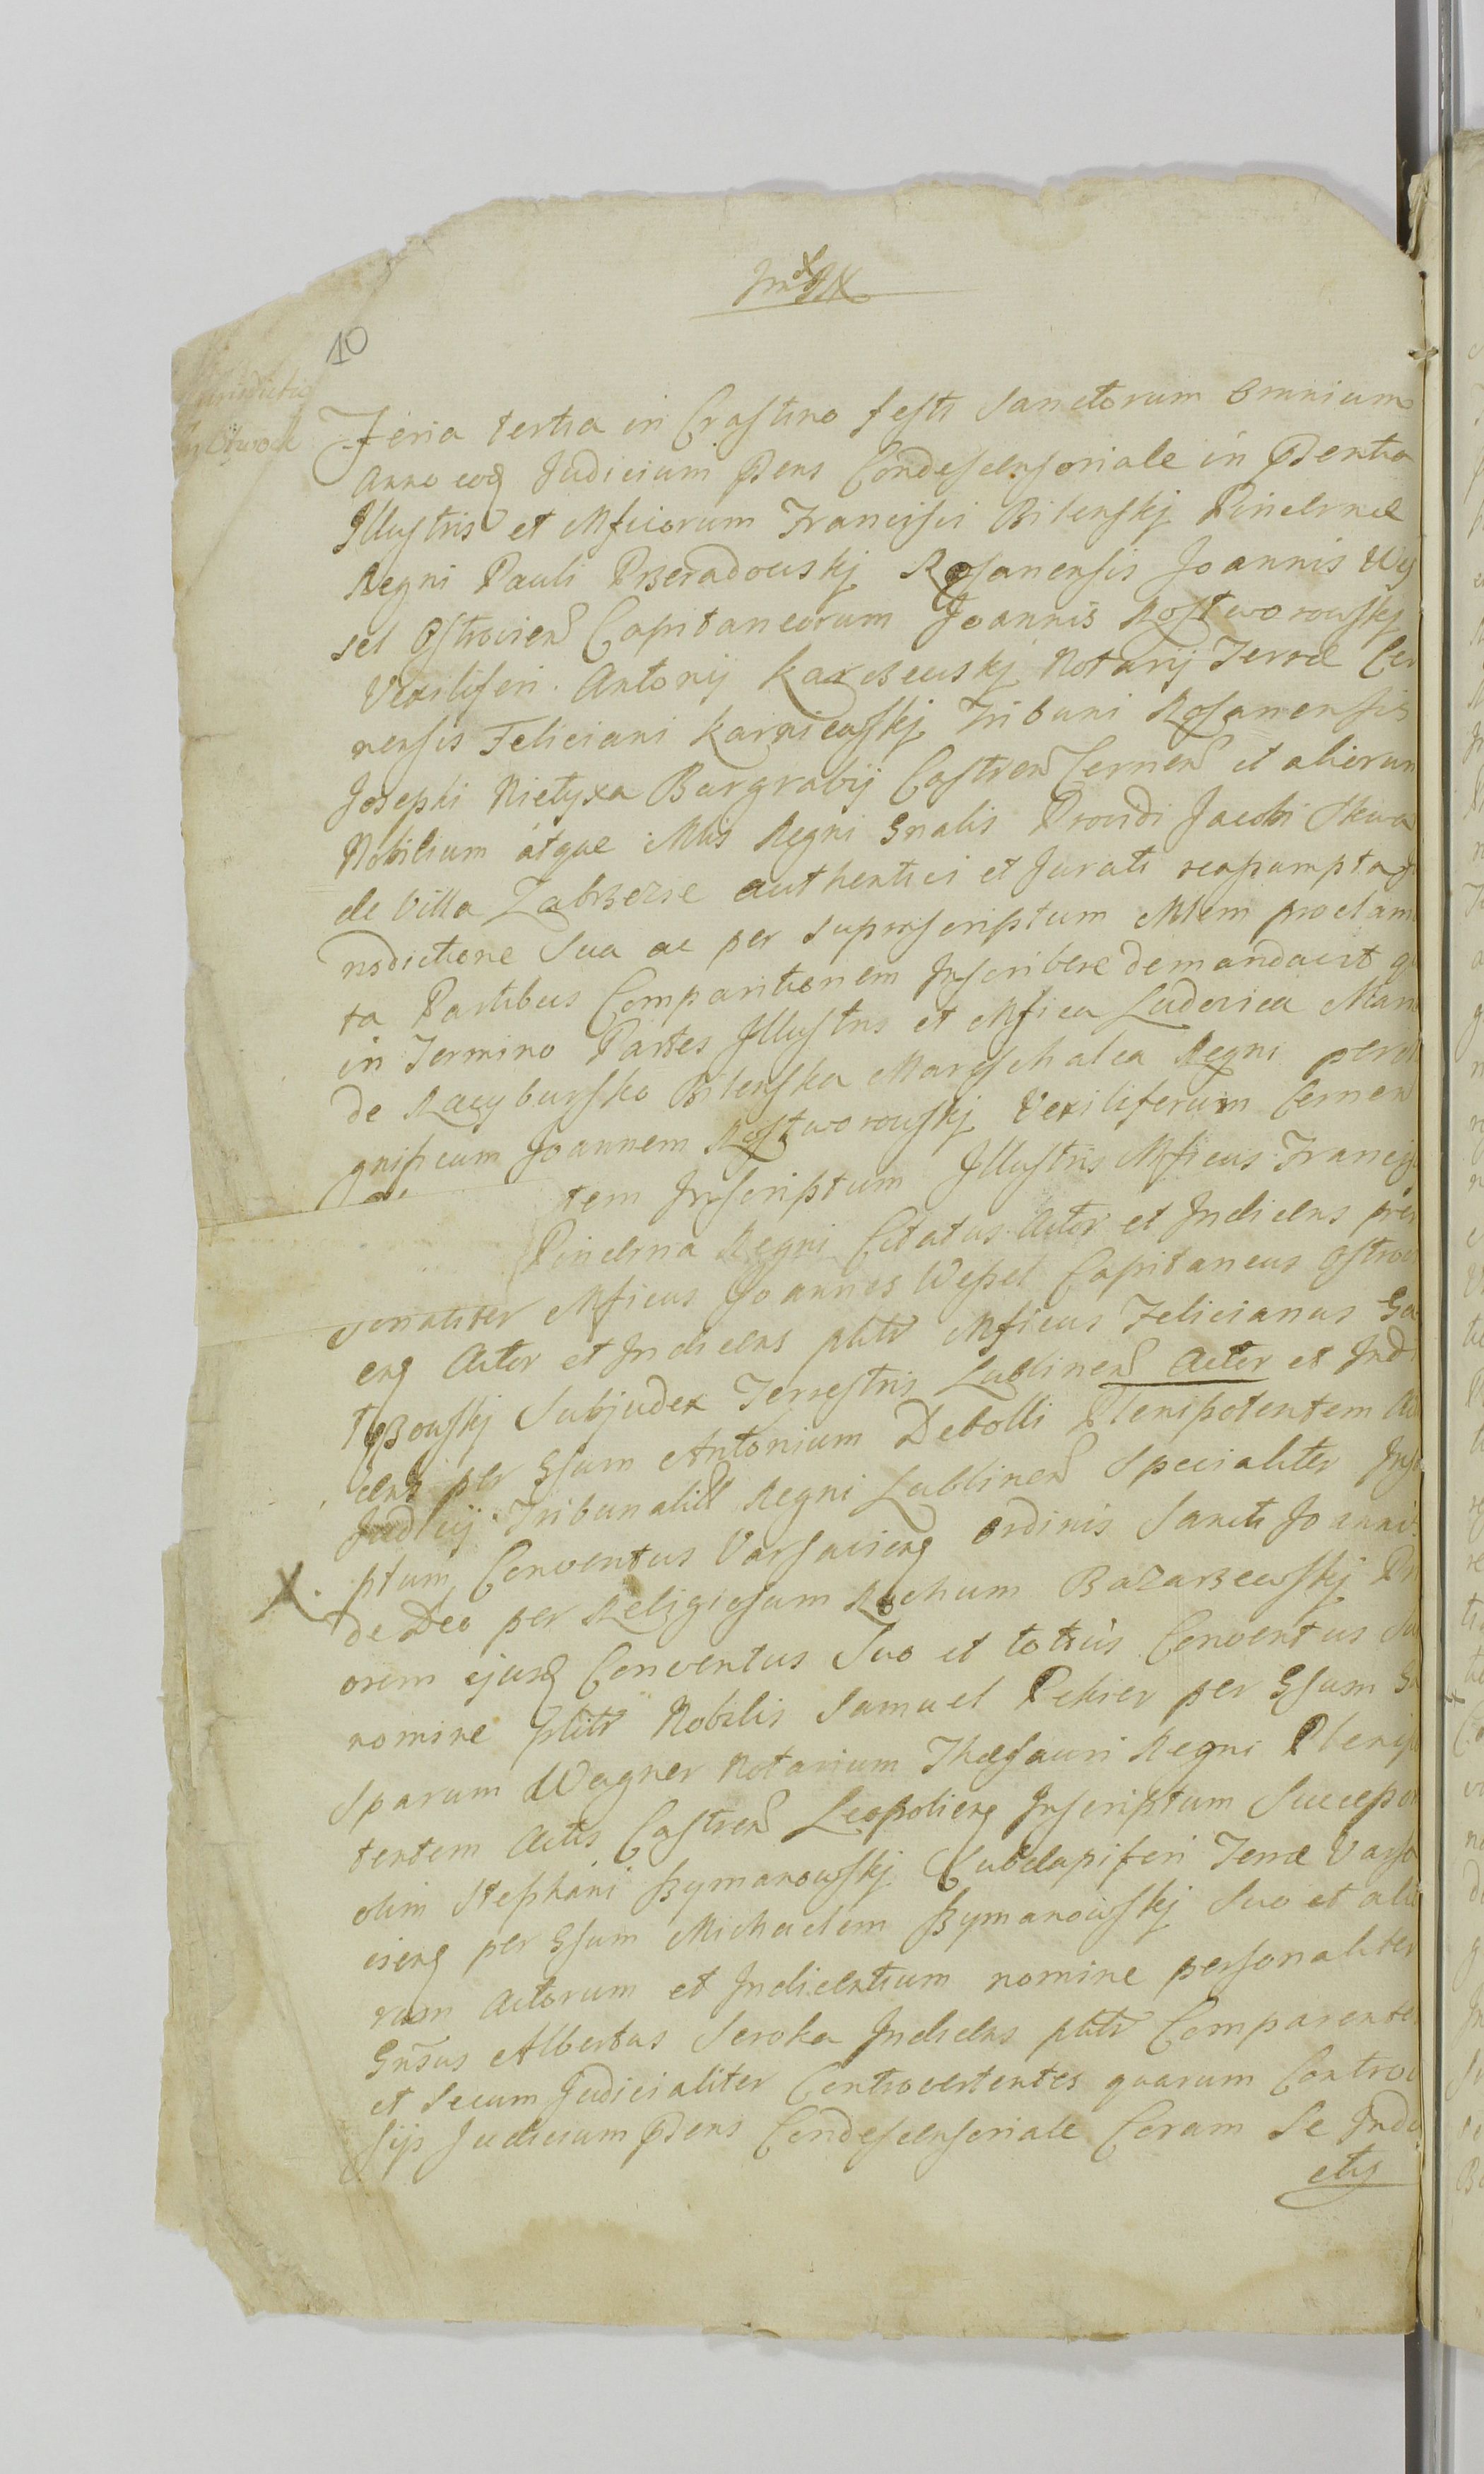 10
Feria tertia in Crastino festi Sanctorum Omnium
Anno eoq Judicium Pens Condescensoriale in Pentia
Illustris et Mficorum Francisci Bilenskj Pincernæ
Regni Pauli Przeradowskj Rosanensis Joannis We
sel Ostrovien Capitaneorum Joannis Rostworowskj
Vexiliferi. Antonij Karczewskj Notarij Terræ Cer
nensis Feliciani Karniewskj Tribuni Rosanensis
Josephi Nietyxa Burgrabij Castren Cernen et aliorum
Nobilium átque Mlis Regni Gnalis Providi Jacobi
de Villa Zabrzezie authentici et Jurati reassumpta
risdictione Sua ac per suprascriptum Mlem proclama
ta Partibus Comparitionem Inscribere demandavit
in Termino Partes Illustris et Mfica Ludovica
de Bilenska Mareschalca Regni per
gnificum Joannem Rostworowskj Vexiliferum Cernen
tem Inscriptum Illustris Mficus Francis
Pincerna Regni Citatus Actor et Indicens per
sonaliter Mficus Joannes Wessel Capitaneus Ostrov
enq Actor et Indicens plitr Mficus Felicianus Ga
Subjudex Terrestris Lublinen Actor et Indi
cens per Gsum Antonium Debolli Plenipotentem
Tribunalit Regni Lublinen Specialiter Inscri
ptum, Conventus Varsavienq ordinis Sancti Joannis
X. de Deo per Religiosum Rochum Bazarzewskj Pri
orem ejusq Conventus Suo et totius Conventus Sui
nomine plitr Nobilis Samuel Pekier per Gsum Ga
sparum Wagner Notarium Thesauri Regni Plenipo
tentem Actis Castren Leopolienq Inscriptum Successor
olim Stephani Szymanowskj Subdapiferi Terræ Varsa
vienq per Gsum Michaelem Szymanowskj Suo et alio
rum Actorum et Indicentium nomine personaliter
Gnsus Albertus Seroka Indicens plitr Comparentes
et Secum Judicialiter Controvertentes quarum Controv
sijs Judicium Pens Condescensoriale Coram Se Indu
ctis